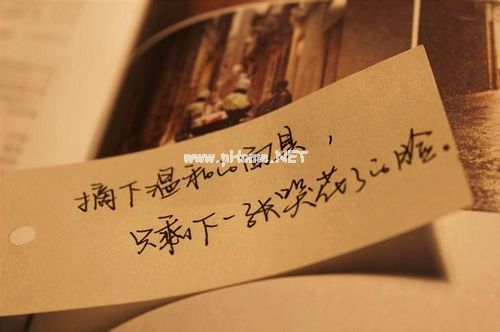 摘下温和的面具，
只剩下一张哭花了的脸。
www.gHome.NET